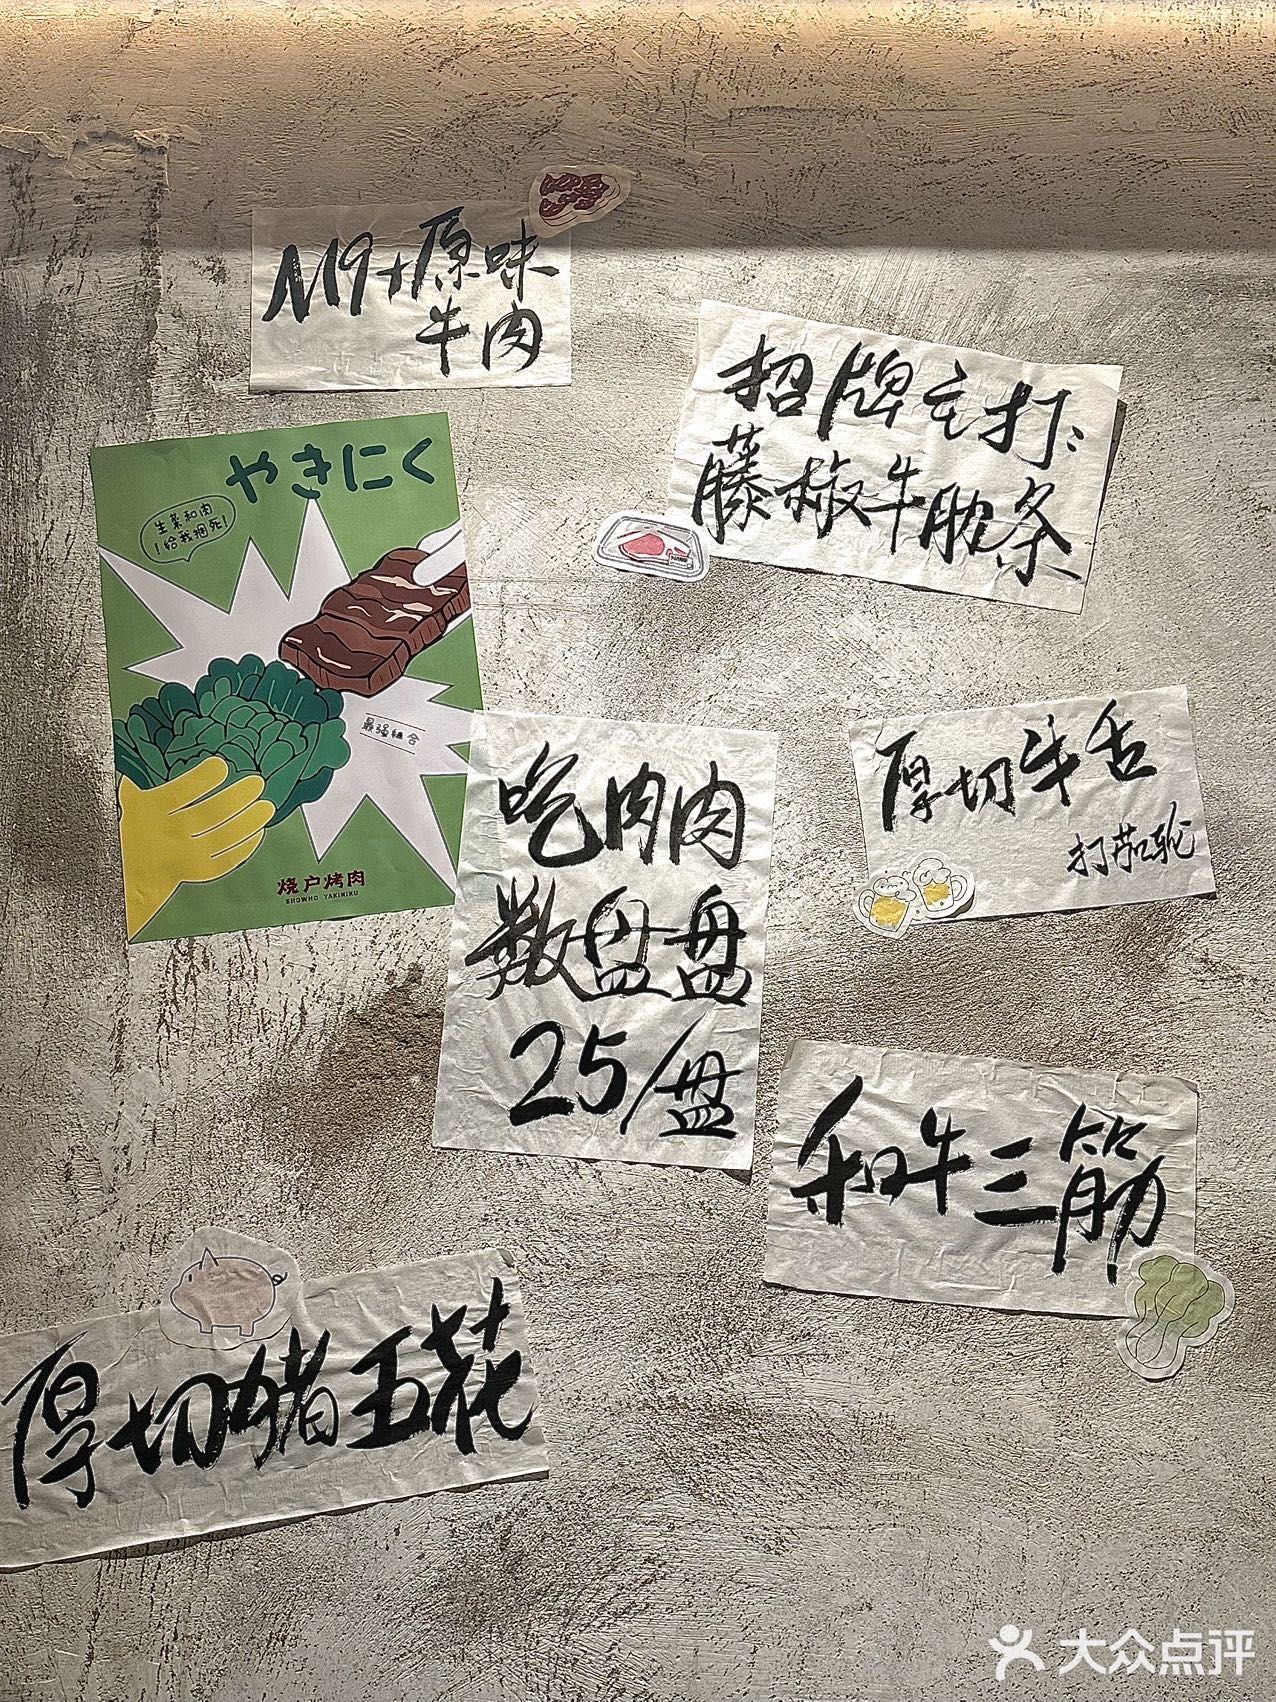 M9+原味
牛肉
招牌主打:
藤椒牛肋条
やきにく
生菜和肉
!给我捆死!
最强组合
烧户烤肉
SHOWHO YAKINIKU
厚切牛舌
打茄轮
吃肉肉
数盘盘
25/盘
和牛三筋
厚切猪五花
大众点评